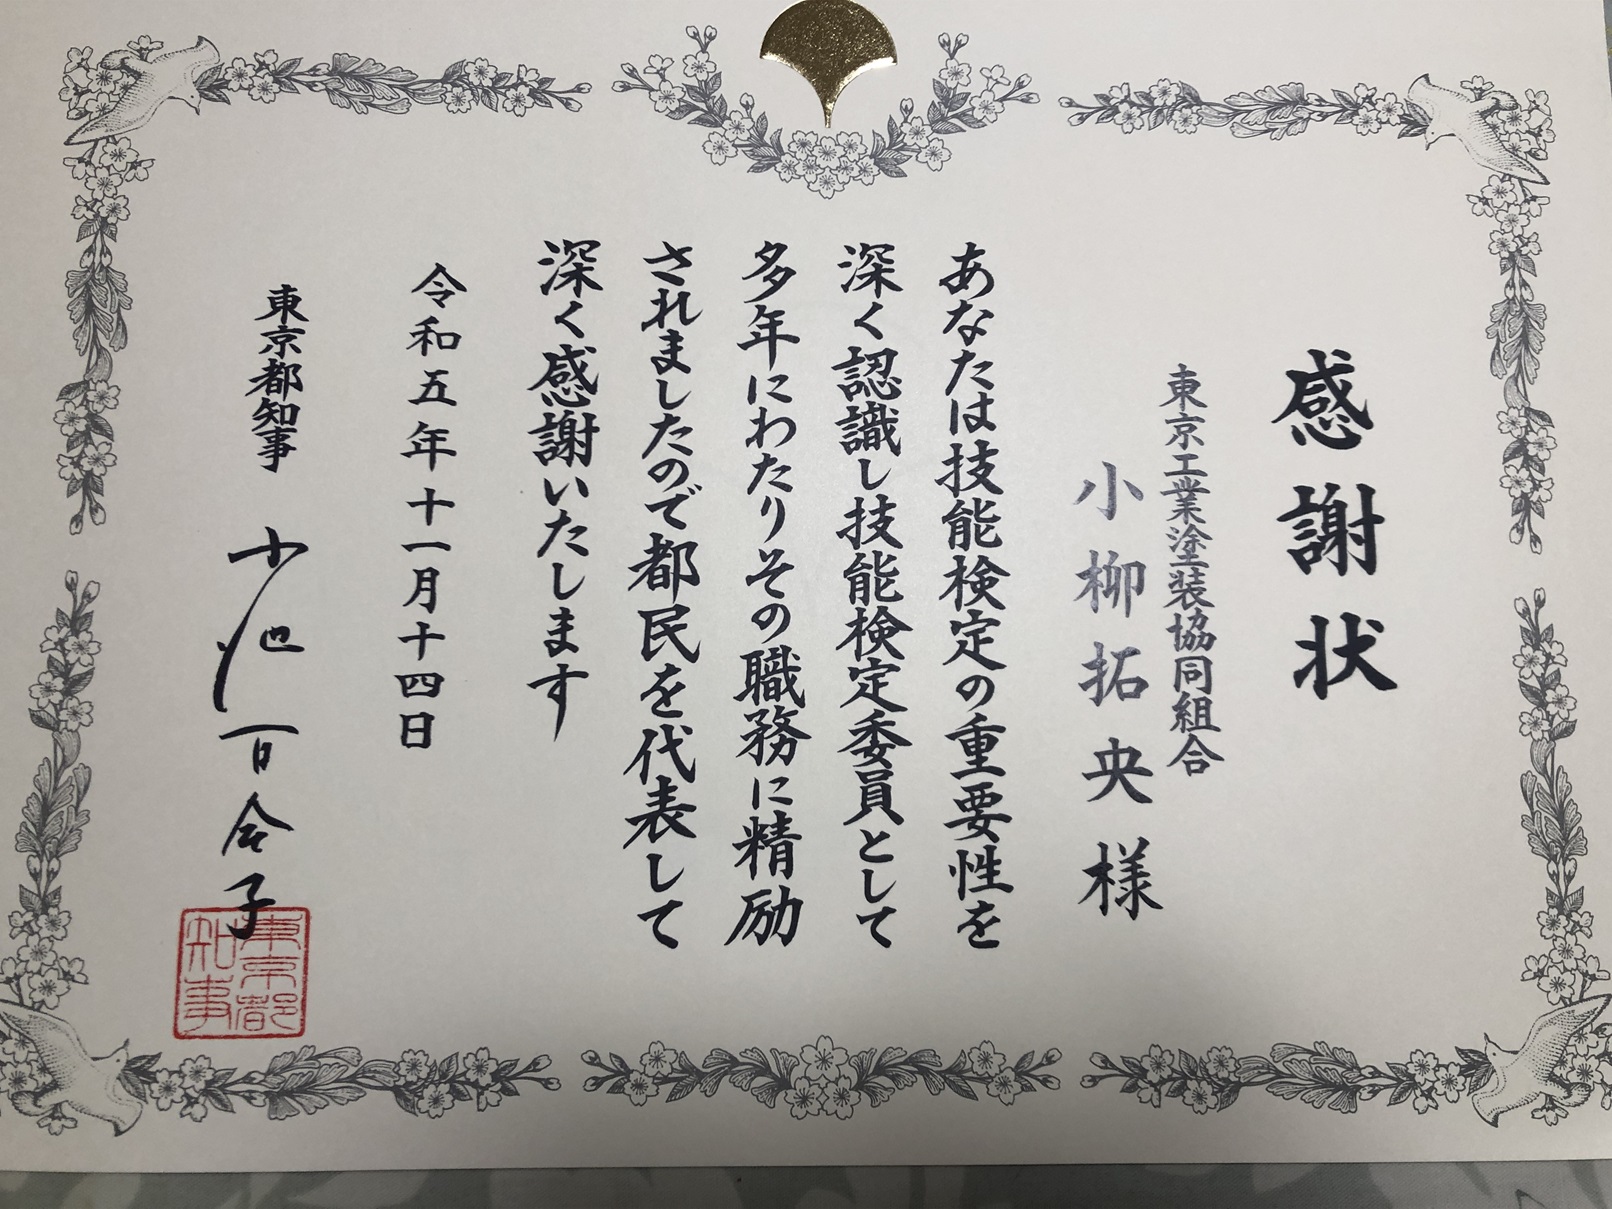 感謝状
東京工業塗装協同組合
小柳拓央様
あなたは技能検定の重要性を
深く認識し技能検定委員として
多年にわたりその職務に精励
されましたので都民を代表して
深く感謝いたします
令和五年十一月十四日
東京都知事 小池百合子
東京都
知事